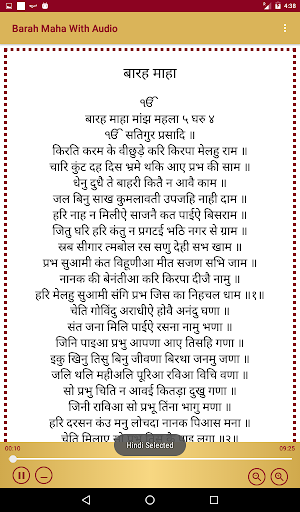 4:38
Barah Maha With Audio
बारह माहा
ੴ
बारह माहा मांझ महला ५ घरु ४
ੴ सतिगुर प्रसादि ॥
किरति करम के वीछुड़े करि किरपा मेलहु राम ॥
चारि कुंट दह दिस भ्रमे थकि आए प्रभ की साम ॥
धेनु दुधै ते बाहरी कितै न आवै काम ॥
जल बिनु साख कुमलावती उपजहि नाही दाम ॥
हरि नाह न मिलीऐ साजनै कत पाईऐ बिसराम ॥
जितु घरि हरि कंतु न प्रगटई भठि नगर से ग्राम ॥
स्रब सीगार त्मबोल रस सणु देही सभ खाम ॥
प्रभ सुआमी कंत विहूणीआ मीत सजण सभि जाम ॥
नानक की बेनंतीआ करि किरपा दीजै नामु ॥
हरि मेलहु सुआमी संगि प्रभ जिस का निहचल धाम ॥१॥
चेति गोविंदु अराधीऐ होवै अनंदु घणा ॥
संत जना मिलि पाईऐ रसना नामु भणा ॥
जिनि पाइआ प्रभु आपणा आए तिसहि गणा ॥
इकु खिनु तिसु बिनु जीवणा बिरथा जनमु जणा ॥
जलि थलि महीअलि पूरिआ रविआ विचि वणा ॥
सो प्रभु चिति न आवई कितड़ा दुखु गणा ॥
जिनी राविआ सो प्रभू तिंना भागु मणा ॥
हरि दरसन कंउ मनु लोचदा नानक पिआस मना ॥
चेति मिलाए
लगा ॥२॥
Hindi Selected
00:10
09:25